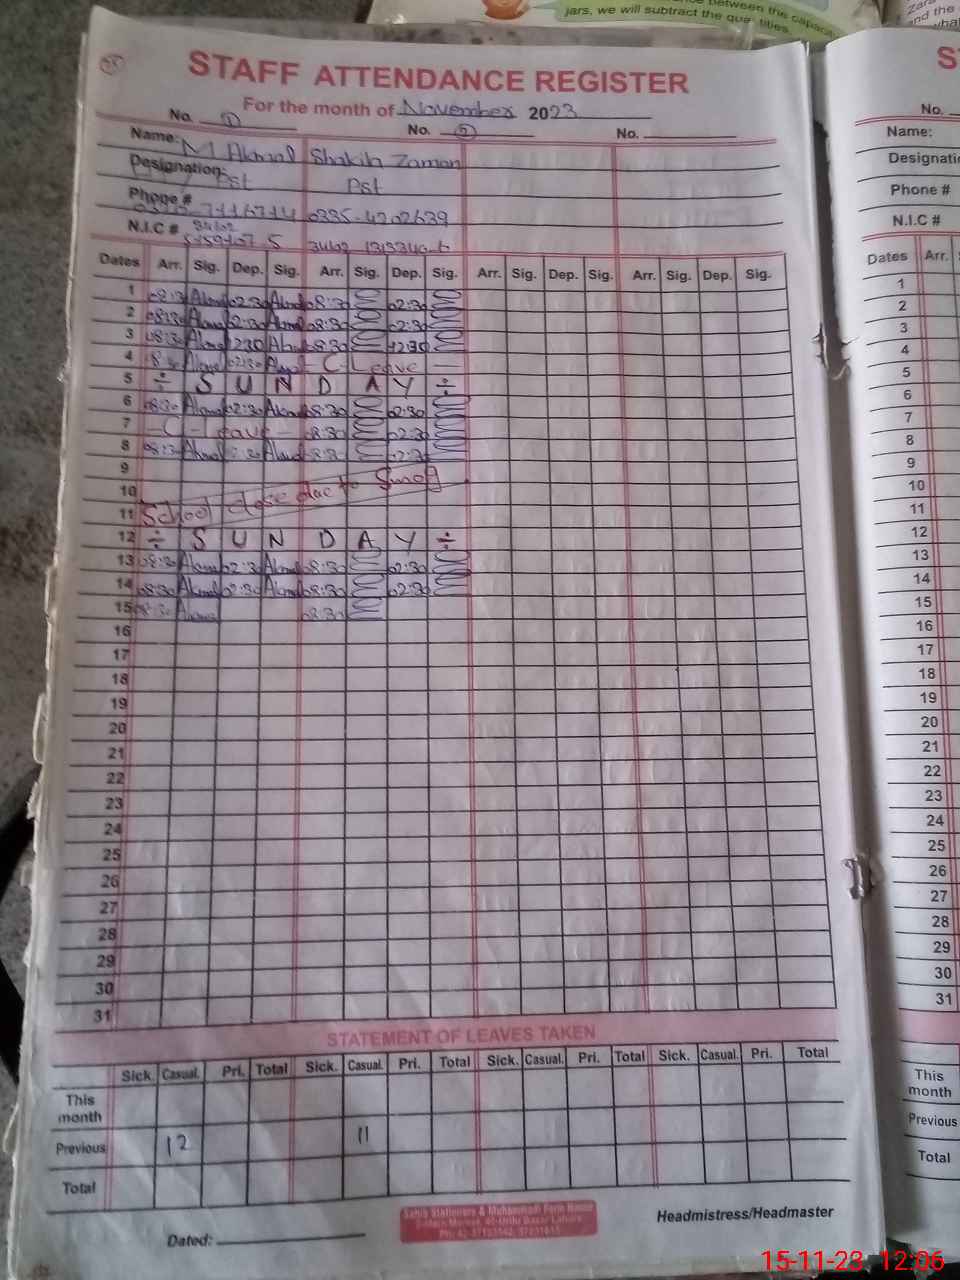 between the capaci
jars, we will subtract the quantities.
STAFF ATTENDANCE REGISTER
For the month of November 2023
No. 1 No. 2 No.
Name: M Akmal Shakila Zaman
Designation: Pst Pst
Phone # 0335-4202639
N.I.C # 34102
Dates Arr. Sig. Dep. Sig. Arr. Sig. Dep. Sig. Arr. Sig. Dep. Sig. Arr. Sig. Dep. Sig.
1 08:30 Akmal 02:30 Akmal 08:30 02:30
2 08:30 Akmal 02:30 Akmal 08:30 02:30
3 08:30 Akmal 1230 Akmal 08:30 12:30
4 8:30 Akmal 02:30 Akmal - C-Leave -
5 ÷ S U N D A Y ÷
6 08:30 Akmal 02:30 Akmal 08:30 02:30
7 - C-Leave - 08:30 02:30
8 08:30 Akmal 02:30 Akmal 08:30 02:30
9
10
11 School close due to Smog
12 ÷ S U N D A Y ÷
13 08:30 Akmal 02:30 Akmal 08:30 02:30
14 08:30 Akmal 02:30 Akmal 08:30 02:30
15 08:30 Akmal 08:30
16
17
18
19
20
21
22
23
24
25
26
27
28
29
30
31
STATEMENT OF LEAVES TAKEN
Sick. Casual. Pri. Total Sick. Casual. Pri. Total Sick. Casual. Pri. Total Sick. Casual. Pri. Total
This month
Previous 12 11
Total
Dated:
Headmistress/Headmaster
No.
Name:
Designati
Phone #
N.I.C #
Dates Arr.
1
2
3
4
5
6
7
8
9
10
11
12
13
14
15
16
17
18
19
20
21
22
23
24
25
26
27
28
29
30
31
This
month
Previous
Total
15-11-23 12:06